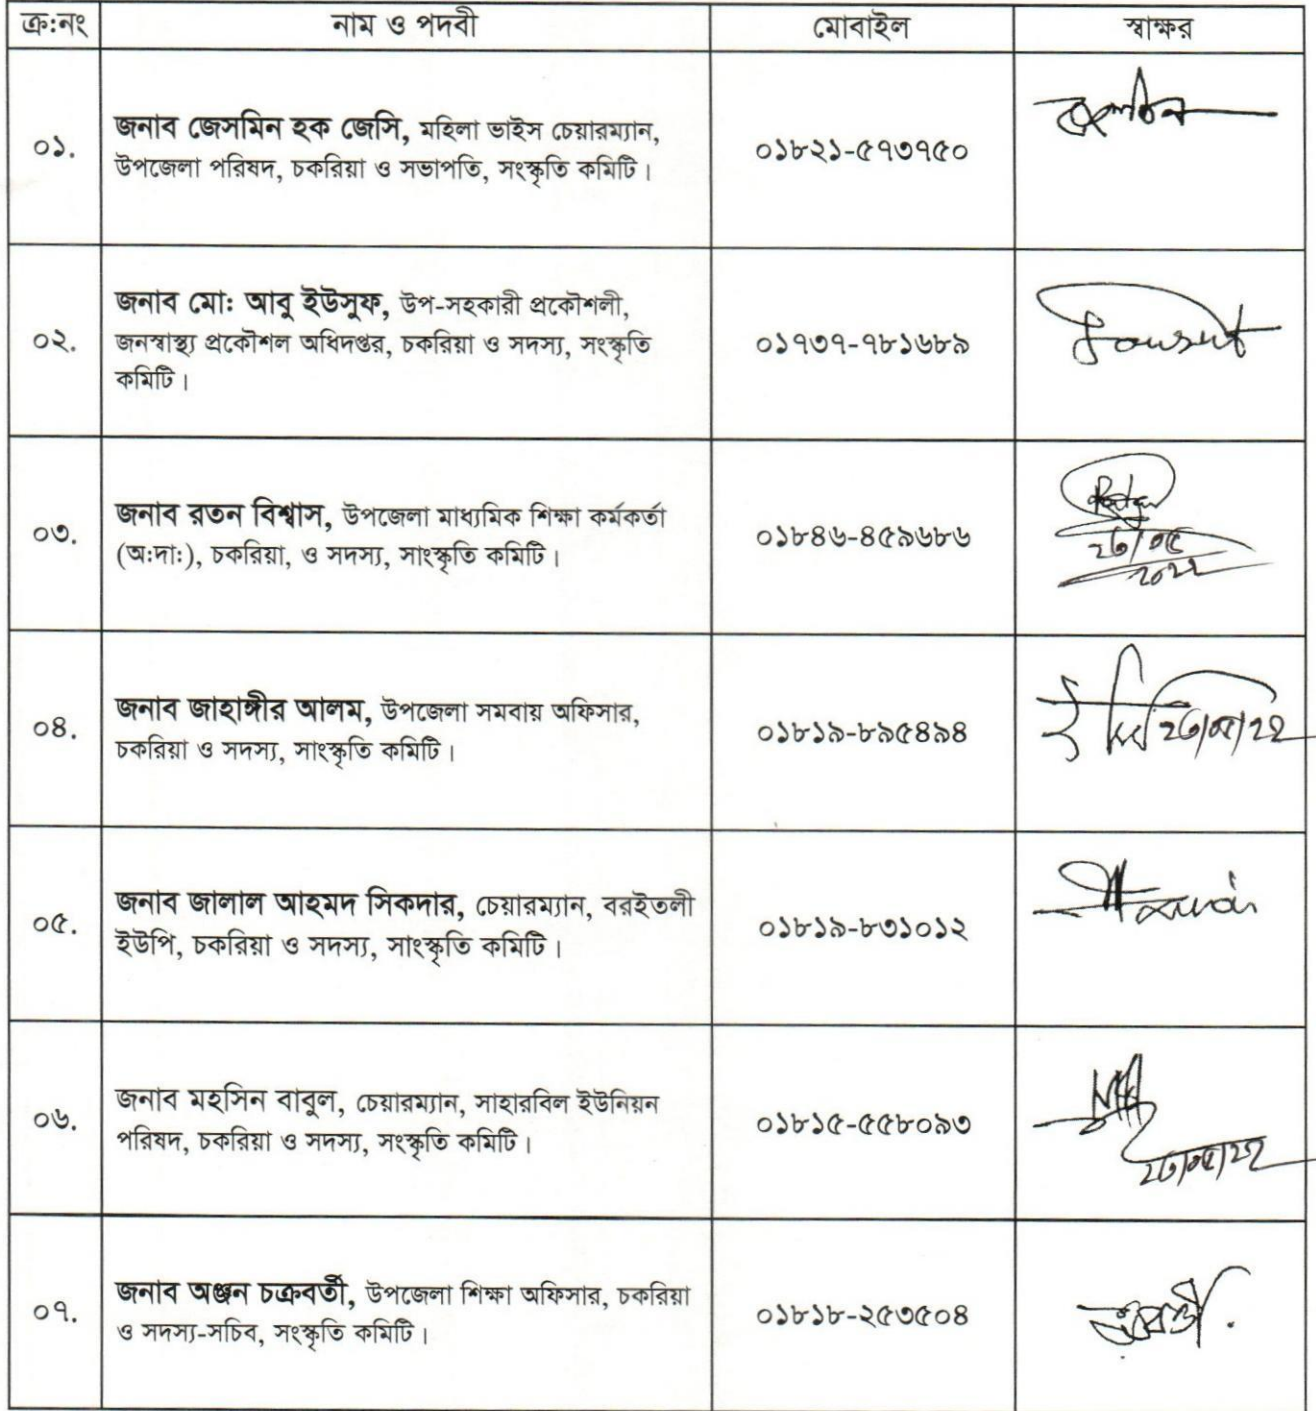 ক্র:নং নাম ও পদবী মোবাইল স্বাক্ষর
০১. জনাব জেসমিন হক জেসি, মহিলা ভাইস চেয়ারম্যান,
উপজেলা পরিষদ, চকরিয়া ও সভাপতি, সংস্কৃতি কমিটি। ০১৮২১-৫৭৩৭৫০
০২. জনাব মো: আবু ইউসুফ, উপ-সহকারী প্রকৌশলী,
জনস্বাস্থ্য প্রকৌশল অধিদপ্তর, চকরিয়া ও সদস্য, সংস্কৃতি
কমিটি। ০১৭৩৭-৭৮১৬৮৯
০৩. জনাব রতন বিশ্বাস, উপজেলা মাধ্যমিক শিক্ষা কর্মকর্তা
(অ:দা:), চকরিয়া, ও সদস্য, সাংস্কৃতি কমিটি। ০১৮৪৬-৪৫৯৬৮৬
২৬/০৫
২০২২
০৪. জনাব জাহাঙ্গীর আলম, উপজেলা সমবায় অফিসার,
চকরিয়া ও সদস্য, সাংস্কৃতি কমিটি। ০১৮১৯-৮৯৫৪৯৪
২৬/০৫/২২
০৫. জনাব জালাল আহমদ সিকদার, চেয়ারম্যান, বরইতলী
ইউপি, চকরিয়া ও সদস্য, সাংস্কৃতি কমিটি। ০১৮১৯-৮৩১০১২
০৬. জনাব মহসিন বাবুল, চেয়ারম্যান, সাহারবিল ইউনিয়ন
পরিষদ, চকরিয়া ও সদস্য, সংস্কৃতি কমিটি। ০১৮১৫-৫৫৮০৯৩
২৬/০৫/২২
০৭. জনাব অঞ্জন চক্রবর্তী, উপজেলা শিক্ষা অফিসার, চকরিয়া
ও সদস্য-সচিব, সংস্কৃতি কমিটি। ০১৮১৮-২৫৩৫০৪